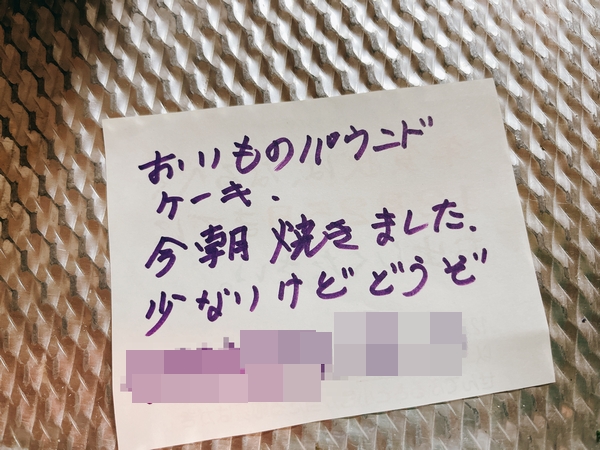 おいものパウンド
ケーキ.
今朝焼きました.
少ないけどどうぞ